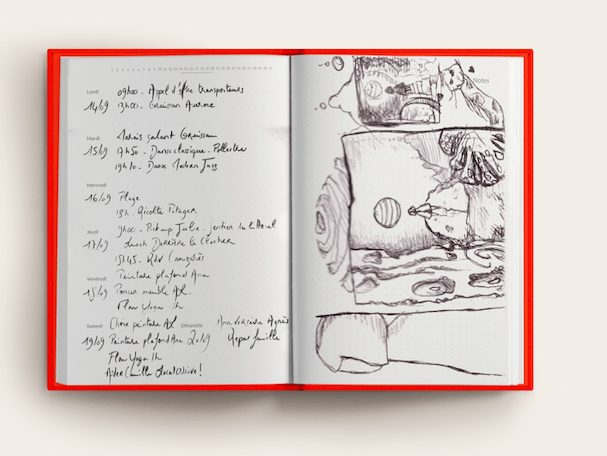 Lundi
14/09
09h00 - Appel d'offre transporteurs
13h00 - Gruissan Aurore
Mardi
15/09
Marais salant Gruissan
17h50 - Danse classique -
19h10 - Danse Modern Jazz
Mercredi
16/09
Plage
18h - Récolte Potager
Jeudi
17/09
9h00 - Pickup Julie - gestion du littoral
Lunch Derrière le Clocher
15h45 - RDV
Vendredi
18/09
Peinture plafond Ana
Poncer meuble
Flow Yoga 1h
Samedi
19/09
peinture
Peinture plafond Ana
Flow Yoga 1h
Camille Local Olive!
Dimanche
20/09
Anniversaire Agnès
Repas famille
Notes